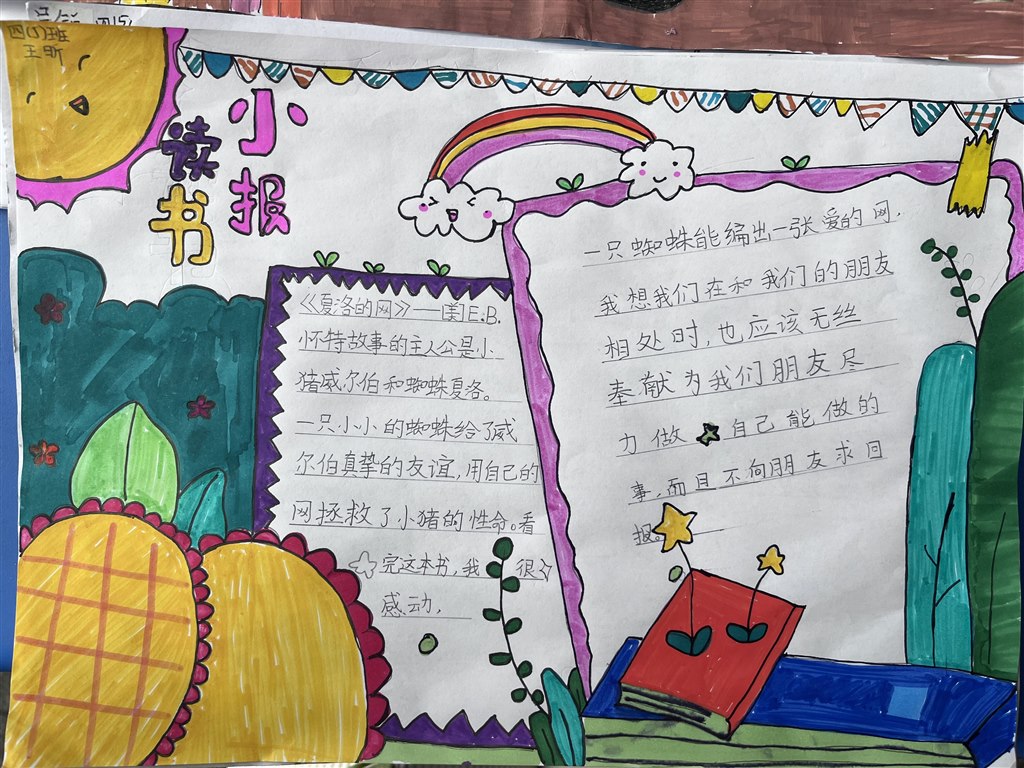 四(1)班
王昕
读书
小报
《夏洛的网》——[美]E.B.
怀特故事的主人公是小
猪威尔伯和蜘蛛夏洛。
一只小小的蜘蛛给了威
尔伯真挚的友谊,用自己的
网拯救了小猪的性命。看
完这本书,我很
感动,
一只蜘蛛能编出一张爱的网,
我想我们在和我们的朋友
相处时,也应该无丝
奉献为我们朋友尽
力做自己能做的
事,而且不向朋友求回
报。